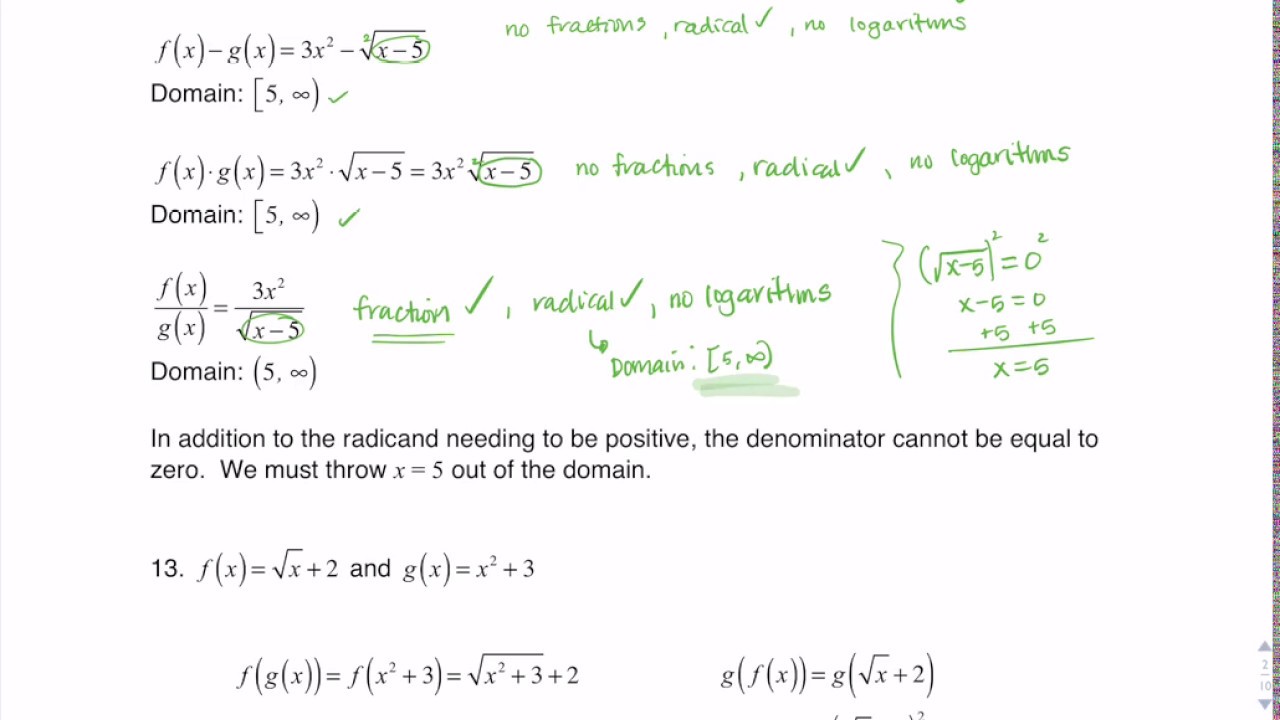 no fractions , radical ✓ , no logarithms
f(x) − g(x) = 3x² − ²√(x − 5)
Domain: [5, ∞) ✓
f(x) · g(x) = 3x² · √(x − 5) = 3x² ²√(x − 5)   no fractions , radical ✓ , no logarithms
Domain: [5, ∞) ✓
f(x)/g(x) = 3x²/√(x − 5)   fraction ✓ , radical ✓ , no logarithms
↳ Domain: [5, ∞)
(√(x−5))² = 0²
x−5 = 0
+5 +5
x=5
Domain: (5, ∞)
In addition to the radicand needing to be positive, the denominator cannot be equal to
zero. We must throw x = 5 out of the domain.
13. f(x) = √x + 2 and g(x) = x² + 3
f(g(x)) = f(x² + 3) = √(x² + 3) + 2   g(f(x)) = g(√x + 2)
2
10